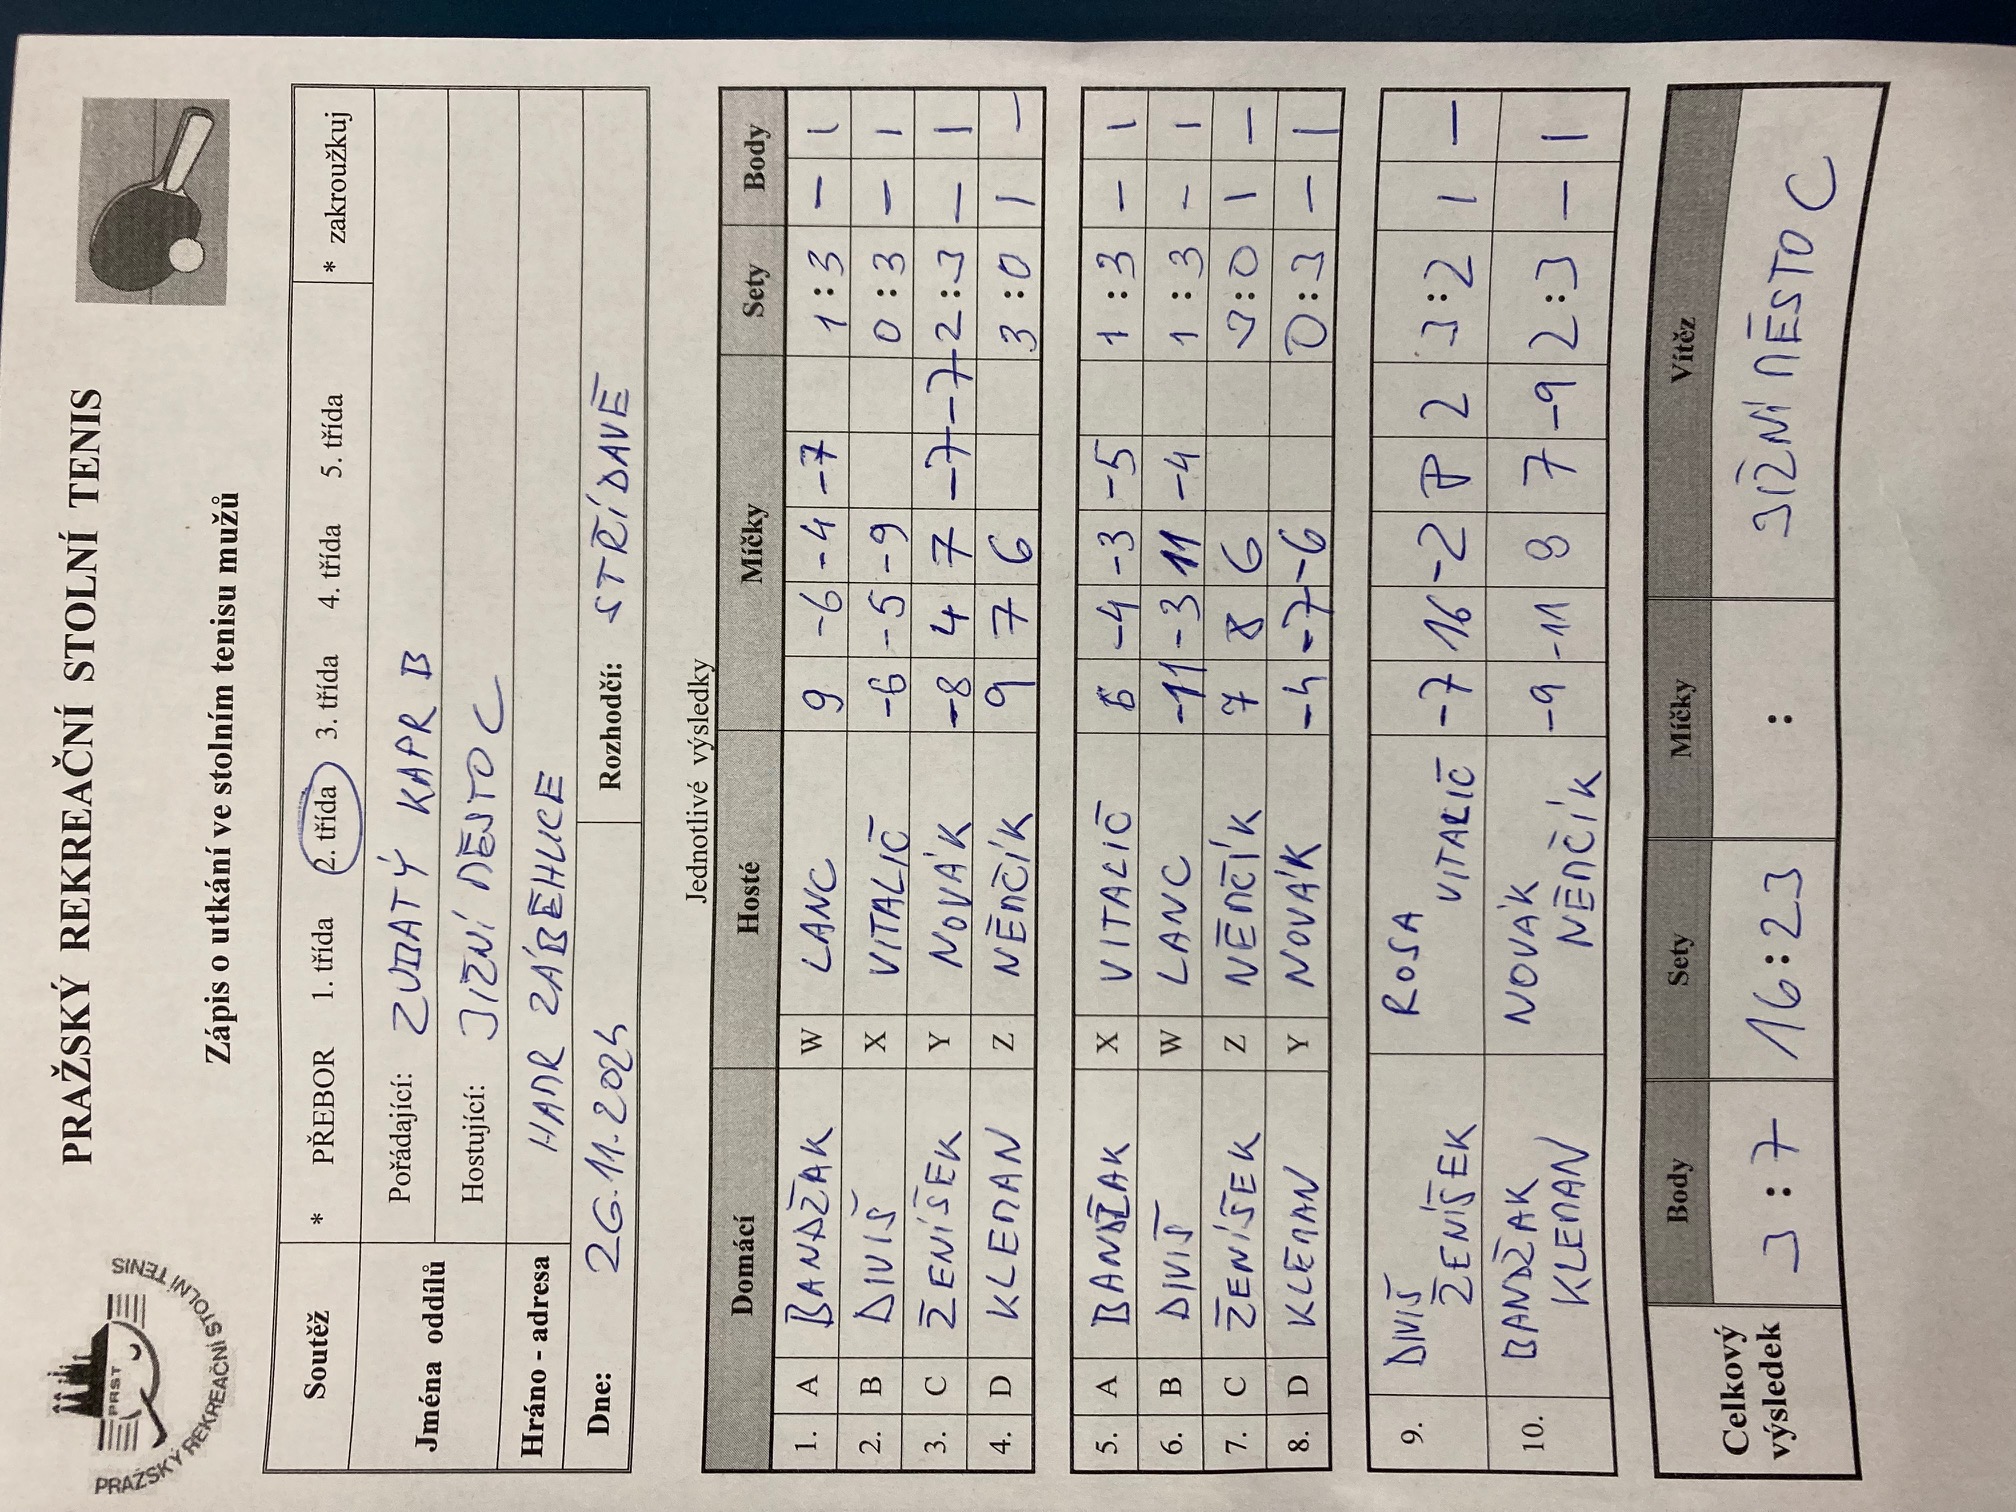 PRAŽSKÝ REKREAČNÍ STOLNÍ TENIS
PRST
PRAŽSKÝ REKREAČNÍ STOLNÍ TENIS
Zápis o utkání ve stolním tenisu mužů
Soutěž * PŘEBOR 1. třída 2. třída 3. třída 4. třída 5. třída * zakroužkuj
Jména oddílů Pořádající: ZUBATÝ KAPR B
Hostující: JIŽNÍ MĚSTO C
Hráno - adresa HAMR ZÁBĚHLICE
Dne: 26.11.2024 Rozhodčí: STŘÍDAVĚ
Jednotlivé výsledky
Domácí Hosté Míčky Sety Body
1. A BANDŽAK W LANC 9 -6 -4 -7 1:3 – 1
2. B DIVIŠ X VITALIČ -6 -5 -9 0:3 – 1
3. C ŽENÍŠEK Y NOVÁK -8 4 7 -7 -7 2:3 – 1
4. D KLEMAN Z NĚMČÍK 9 7 6 3:0 1 –
5. A BANDŽAK X VITALIČ 6 -4 -3 -5 1:3 – 1
6. B DIVIŠ W LANC -11 -3 11 -4 1:3 – 1
7. C ŽENÍŠEK Z NĚMČÍK 7 8 6 3:0 1 –
8. D KLEMAN Y NOVÁK -4 -7 -6 0:3 – 1
9. DIVIŠ ROSA -7 16 -2 8 2 3:2 1 –
ŽENÍŠEK VITALIČ
10. BANDŽAK NOVÁK -9 -11 9 7 -9 2:3 – 1
KLEMAN NĚMČÍK
Celkový výsledek Body Sety Míčky Vítěz
3:7 16:23 : JIŽNÍ MĚSTO C